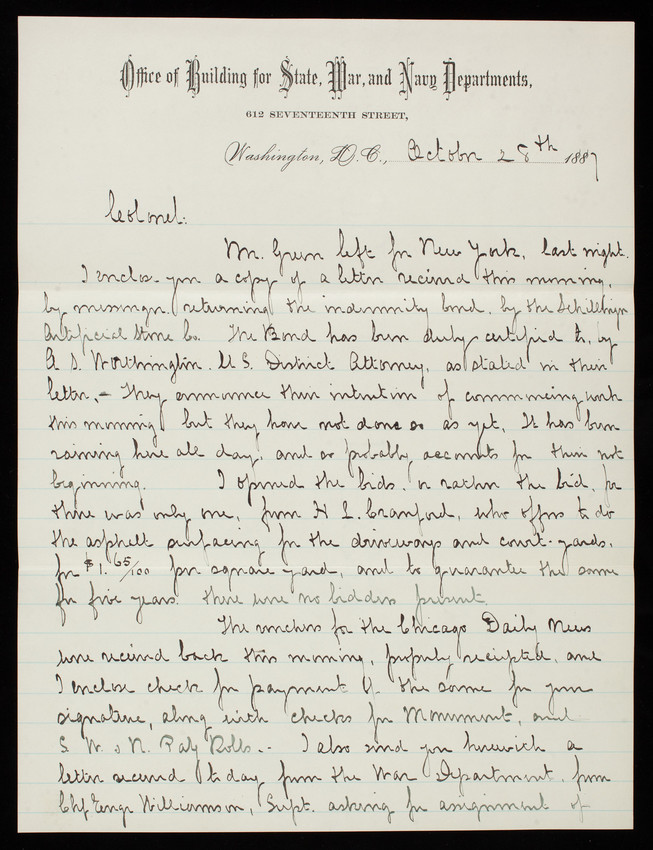 Office of Building for State, War, and Navy Departments,
612 SEVENTEENTH STREET,
Washington, D.C., October 28th 1887
Colonel:
Mr. Green left for New York, last night.
I enclose you a copy of a letter received this morning,
by messenger, returning the indemnity bond, by the Schillinger
Artificial Stone Co. The Bond has been duly certified to, by
A. S. Worthington. U.S. District Attorney, as stated in their
letter, - They announce their intention of commencing work
this morning but they have not done so as yet, It has been
raining here all day, and so probably accounts for their not
beginning. I opened the bids, or rather the bid, for
there was only one, from H. L. Cranford, who offers to do
the asphalt surfacing for the driveways and court-yards,
for $1.65/100 per square yard, and to guarantee the same
for five years. There were no bidders present.
The vouchers for the Chicago Daily News
were received back this morning, properly receipted, and
I enclose check for payment of the same for your
signature, along with checks for Monument, and
S. W. & N. Pay Rolls. - I also send you herewith a
letter received today from the War Department, from
Chf Engr Williamson, Supt. asking for assignment of